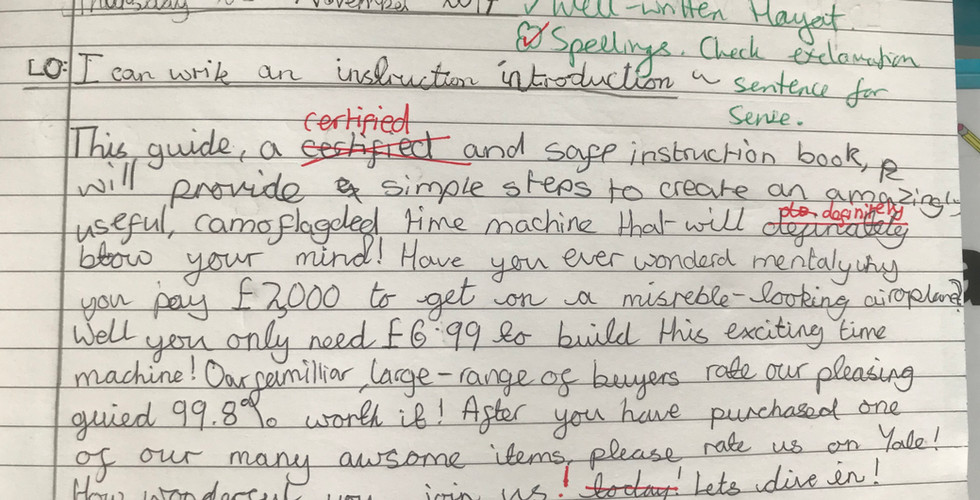 Thursday November 2017 Well-written Hayat.
Spellings. Check exclamation
LO: I can write an instruction introduction sentence for
Sense.
certified
This guide, a certifired and safe instruction book,
will provide simple steps to create an amazingly
definitely
useful, camoflagded time machine that will definately
blow your mind! Have you ever wonderd mentaly why
you pay £2,000 to get on a misreble-looking airoplane?
Well you only need £6.99 to build this exciting time
machine! Our familliar, large-range of buyers rate our pleasing
guied 99.8% worth it! After you have purchased one
of our many awsome items, please rate us on Yale!
How you join us! today! Lets dive in!